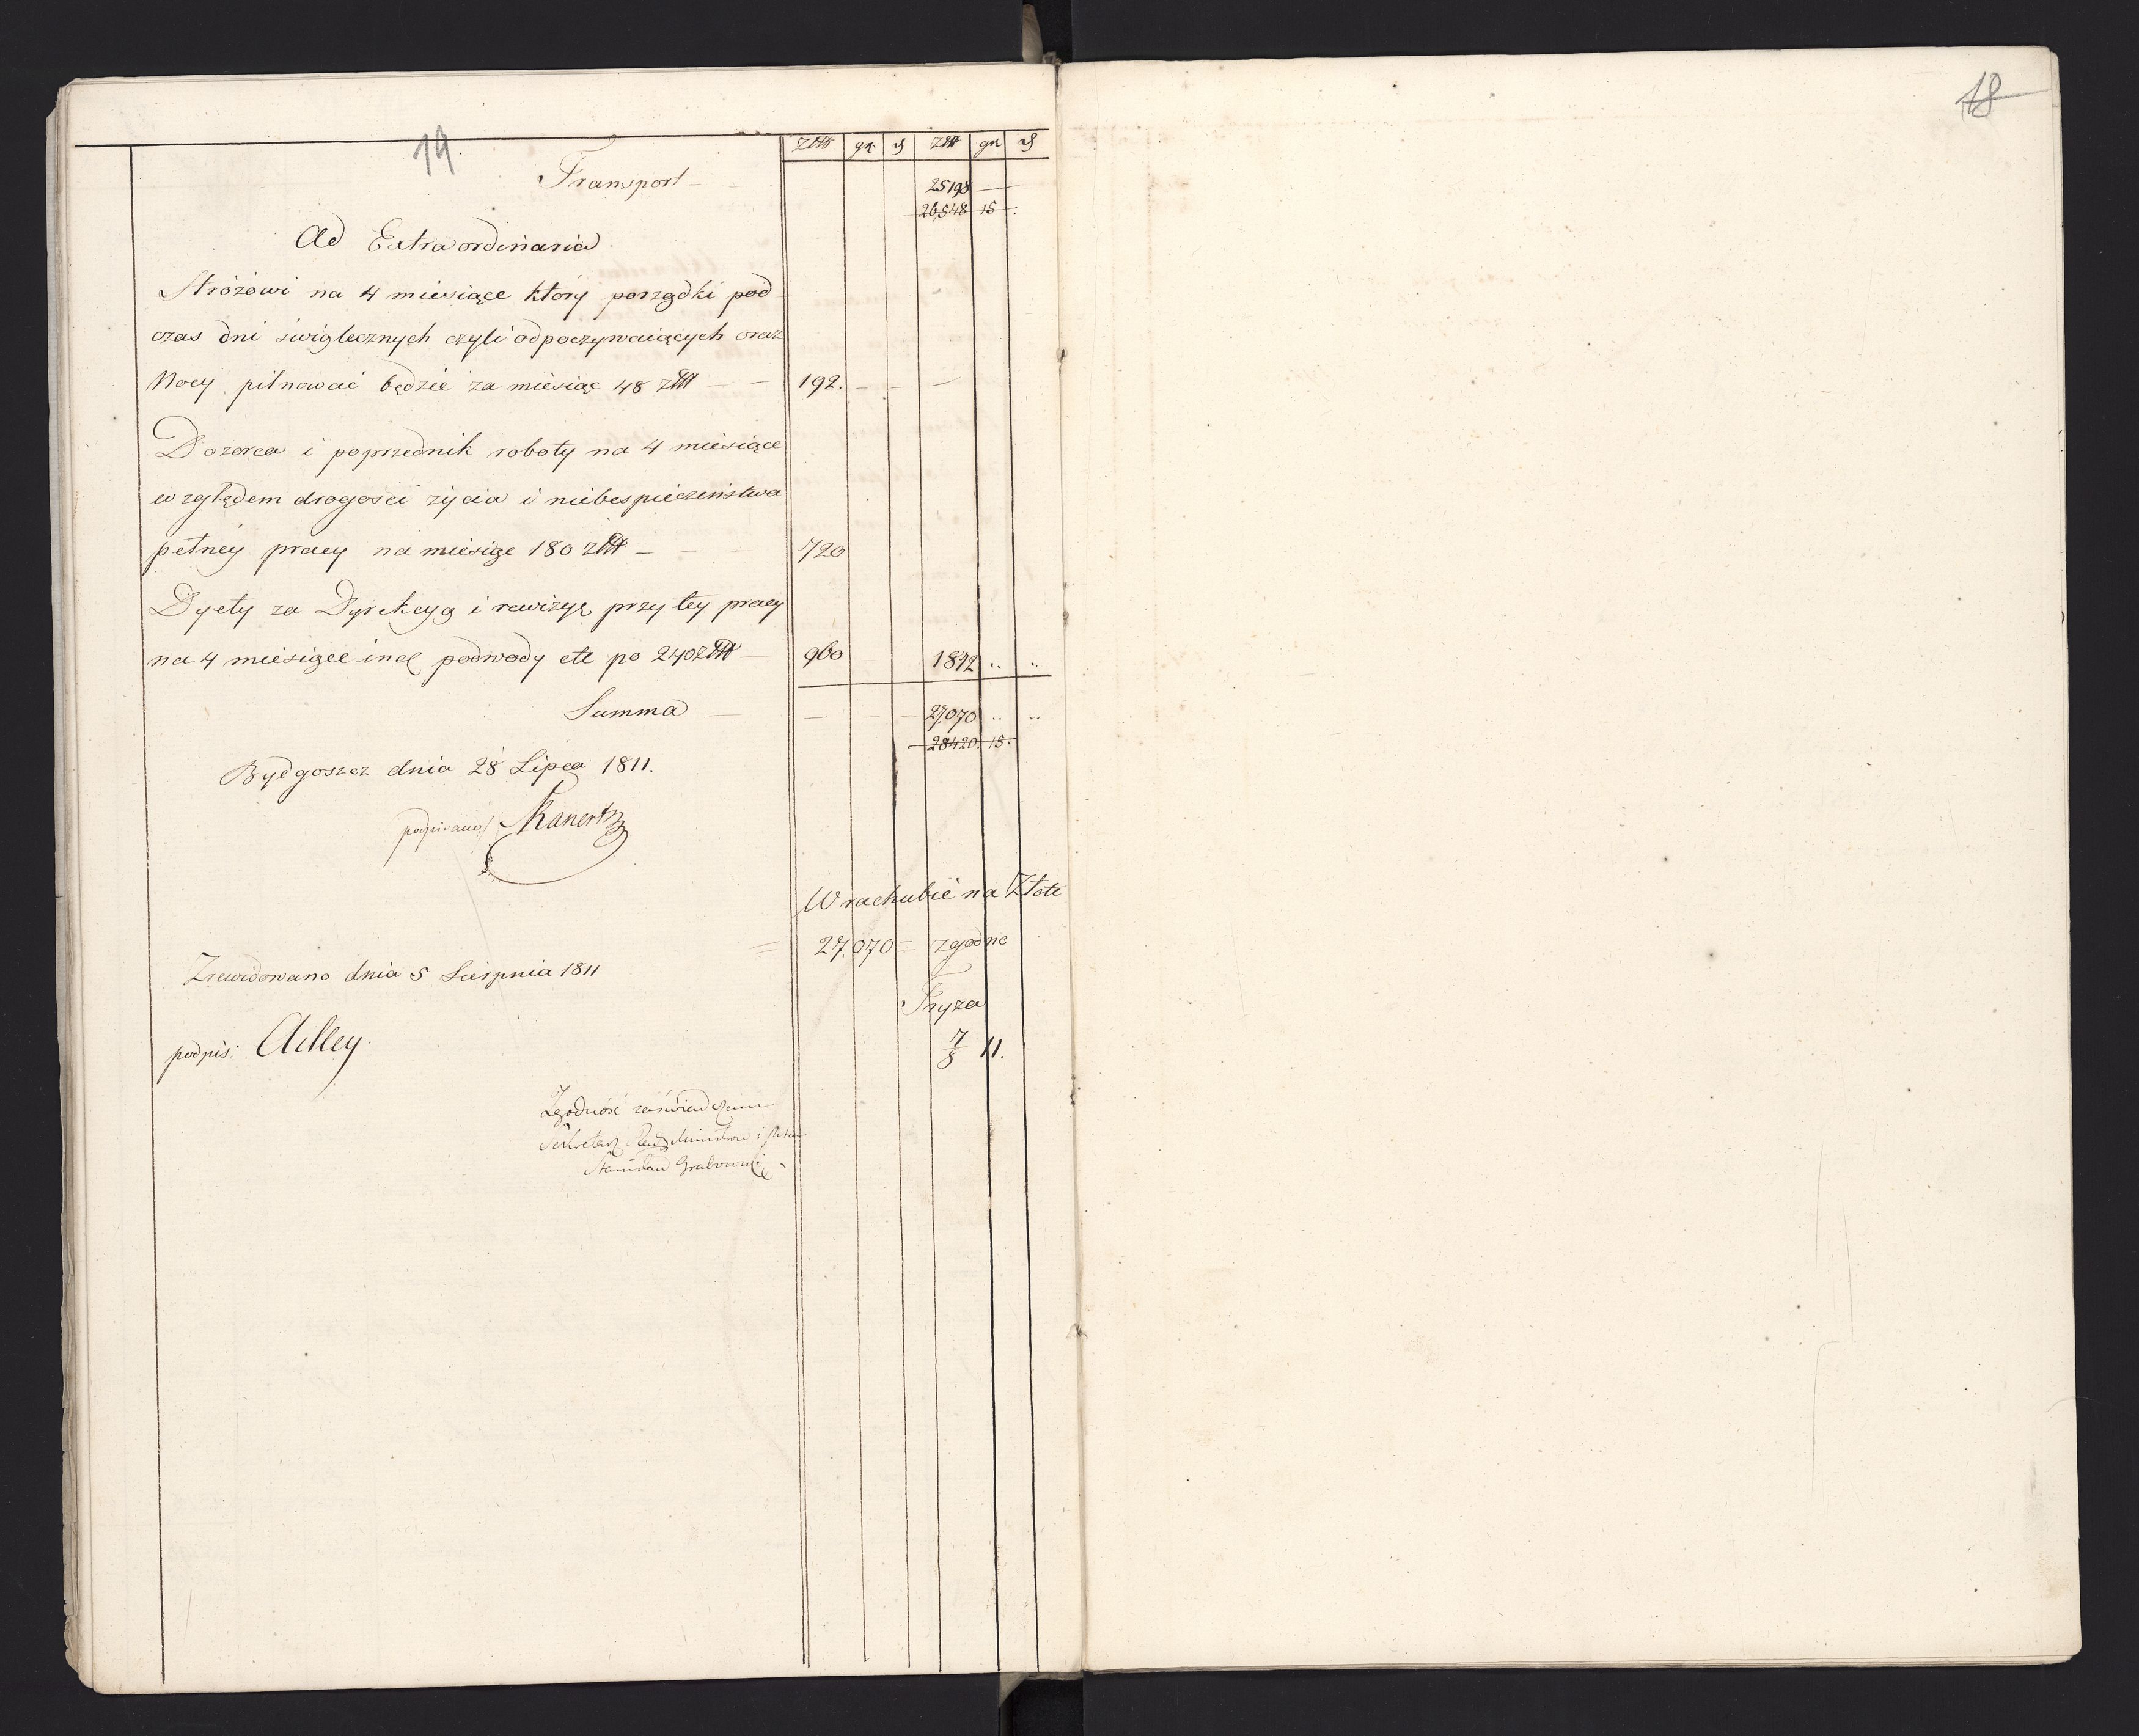 19.
złł gr. ₰ złł gr ₰
Transport — 25198 —
26,548 15
Ad Extraordinaria
Stróżowi na 4 miesiące który porządki pod
czas dni świątecznych czyli odpoczywaiących oraz
Nocy pilnować będzie za miesiąc 48 złł — — 192. — — —
Dozorca i poprzednik roboty na 4 miesiące
względem drogości życia i niebespieczeństwa
pełney pracy na miesiąc 180 złł — — — 720
Dyety za Dyrekcyą i rewizyę przy tey pracy
na 4 miesiące incl podwody etc po 240 złł — 960 1872 .. ..
Summa — — — — 27,070 .. ..
28420. 15.
Bydgoszcz dnia 28 Lipca 1811.
podpisano/ Kanertz
W rachubie na Złote
= 27,070 = zgodne
Zrewidowano dnia 5 Sierpnia 1811
Tryza
podpis: Adley.
7/8 11.
Zgodność zaświadczam
Sekretarz Rady Ministrów i Stanu
Stanisław Grabowski
18